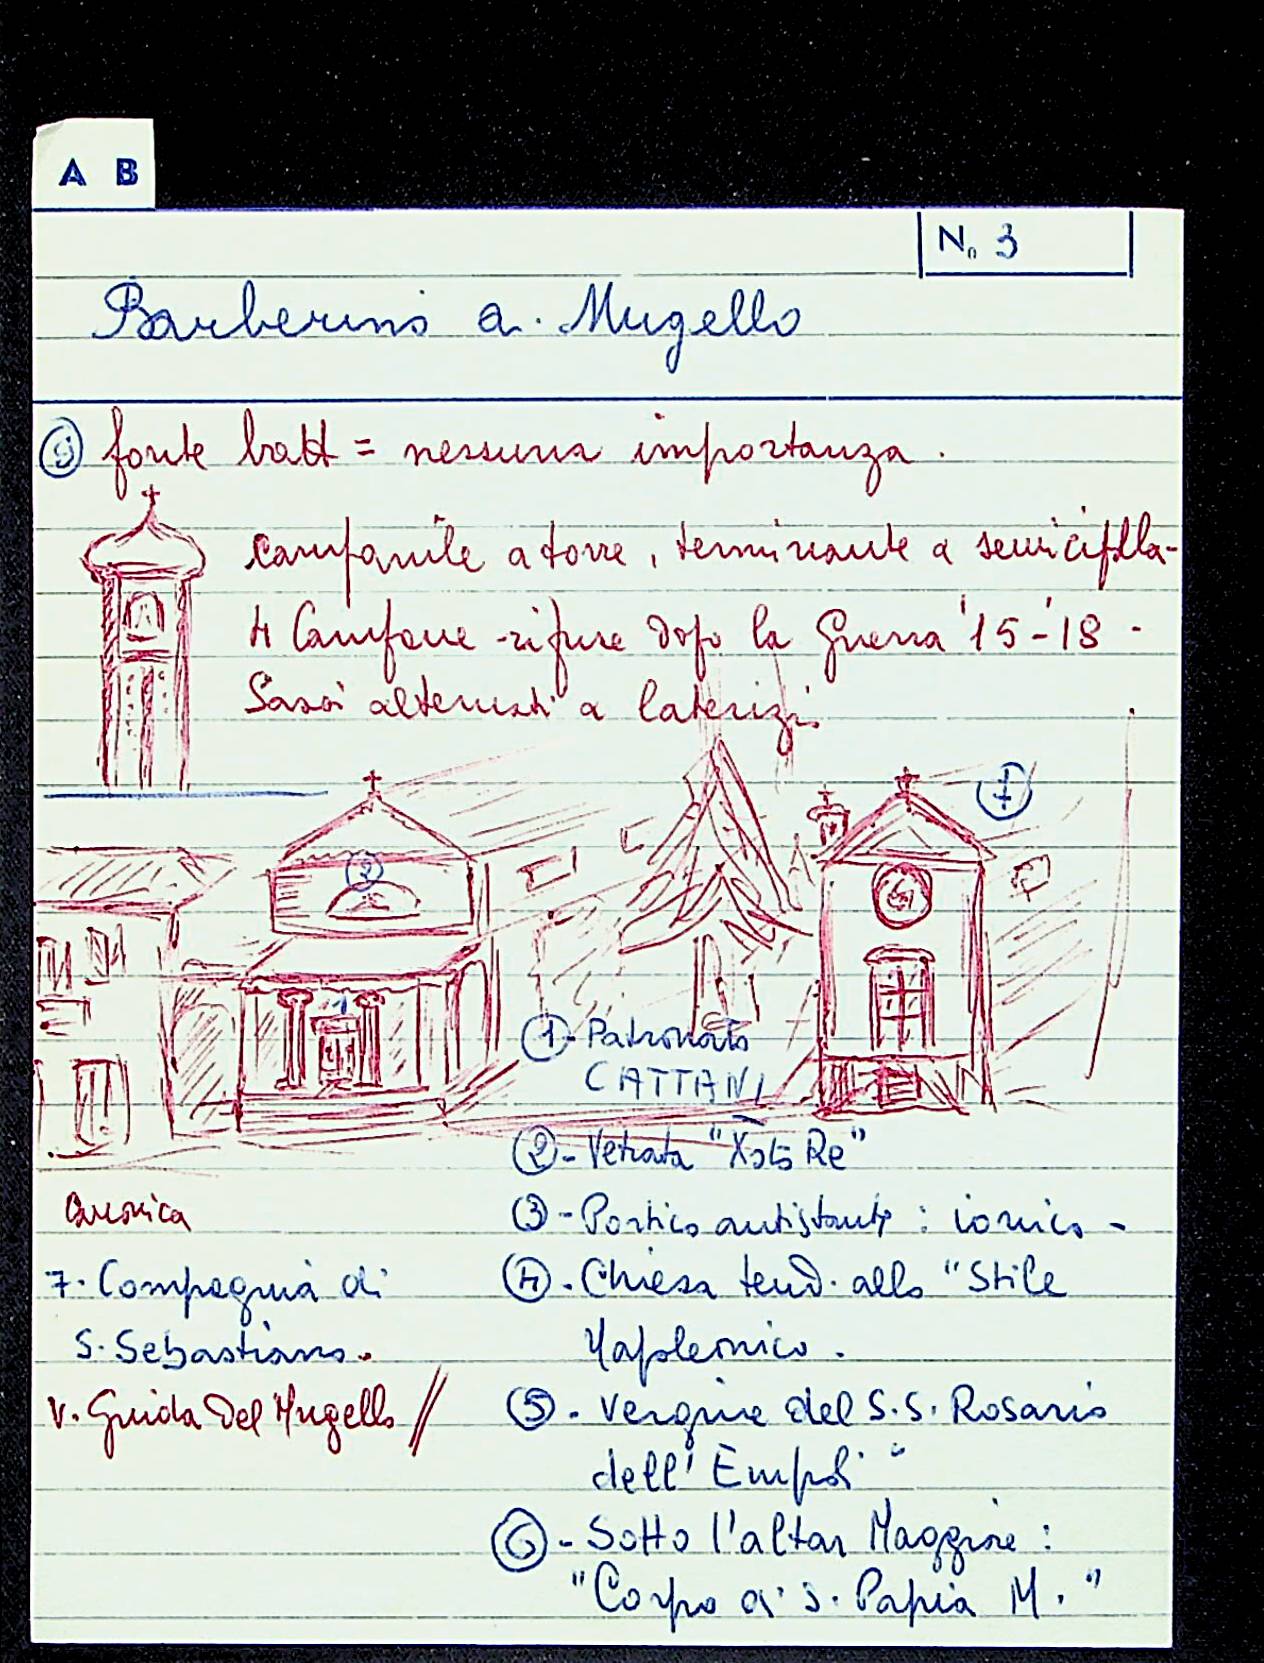 A B
N. 3
Barberino a. Mugello
fonte batt = nessuna importanza.
campanile a torre, terminante a semicipolla-
4 Campane -rifuse dopo la Guerra '15-'18-
Sassi alternati a laterizi.
7
2
1
1 - Patronato
CATTANI
2 - Vetrata "Xsto Re"
3 - Portico antistante: ionico -
Canonica
7. Compagnia di
S. Sebastiano.
V. Guida del Mugello //
4 - Chiesa tend. allo "Stile
Napoleonico.
5 - Vergine del S.S. Rosario
dell'Empoli"
6 - Sotto l'altar Maggiore:
"Corpo di S. Papia M."